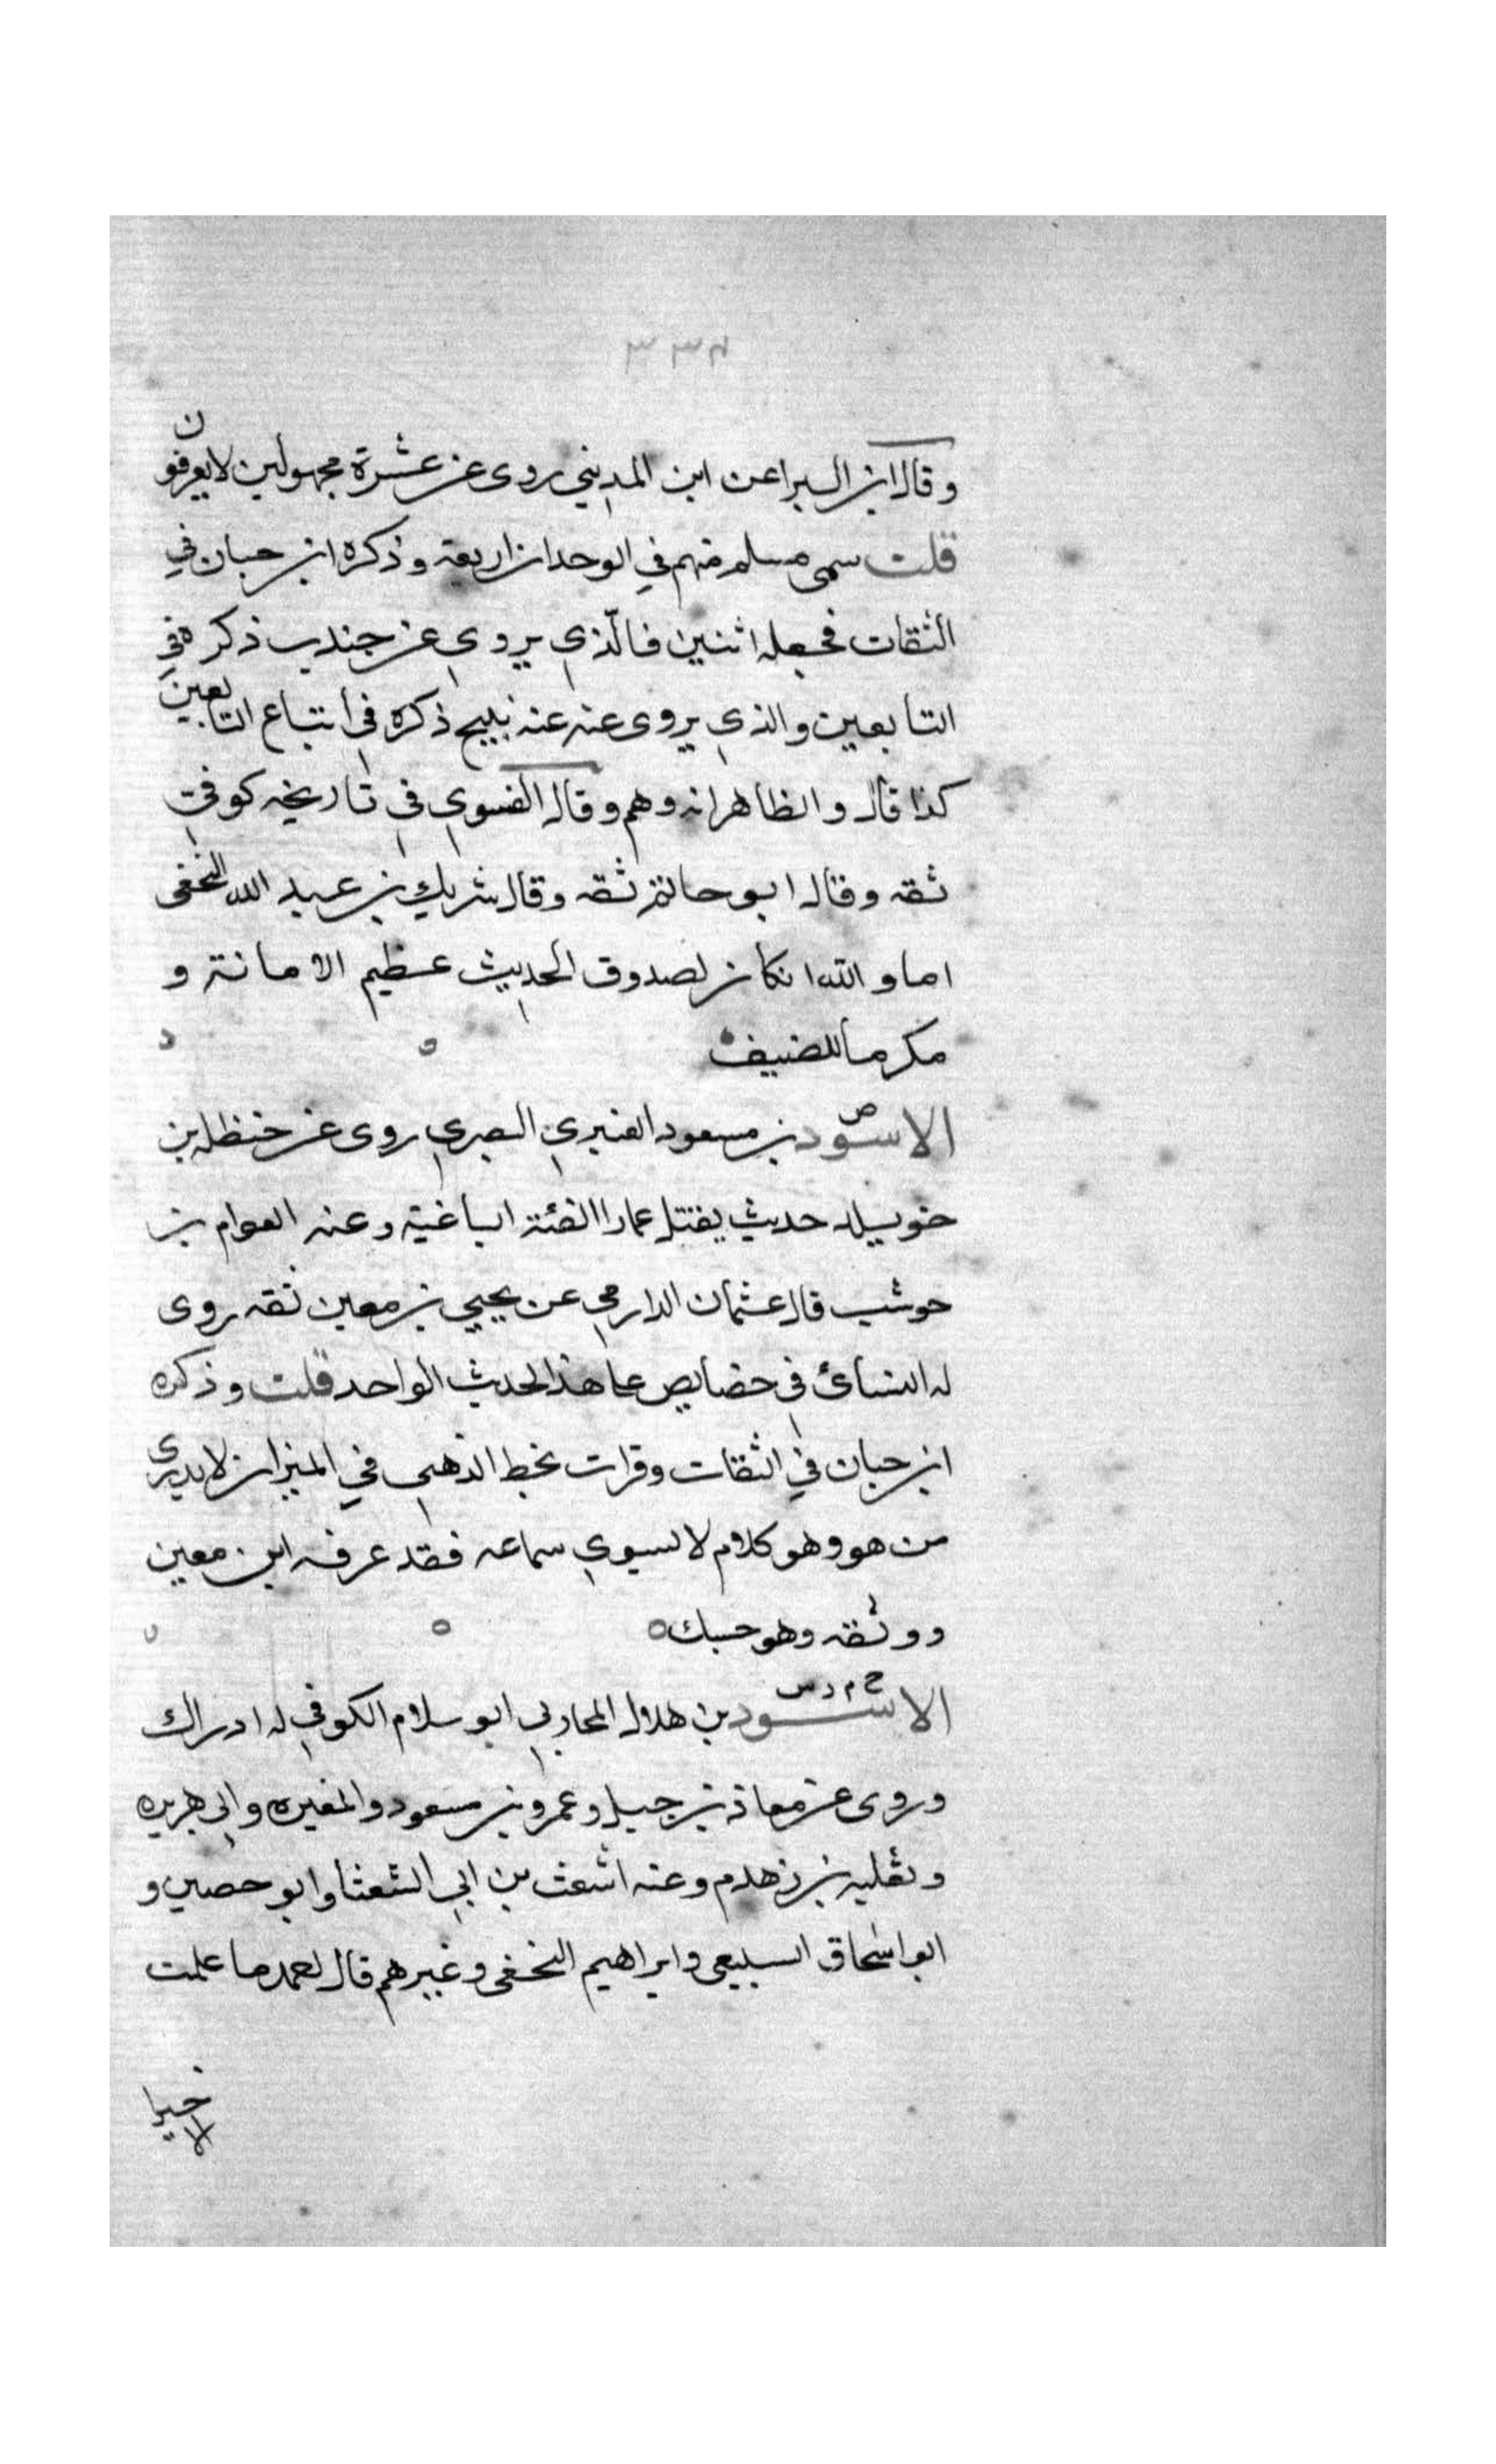 وقال ابن البرا عن ابن المديني روى عن عشرة مجهولين لا يعرفون
قلت سمى مسلم منهم في الوحدان اربعة وذكره ابن حبان في
الثقات فجعله اثنين فالّذي يروي عن جندب ذكره في
التابعين والذي يروى عنه عنه نبيح ذكره في اتباع التابعين
كذا قال والظاهر انه وهم وقال الفسوي في تاريخه كوفي
ثقه وقال ابو حاتم ثقه وقال شريك بن عبد الله النخعى
اما والله ان كان لصدوق الحديث عظيم الامانة و
مكرما للضيف
الاسود بن مسعود العنبري البصري روى عن حنظله بن
خويلد حديث يقتل عمارا الفئة الباغية وعنه العوام بن
حوشب قال عثمان الدارمي عن يحيي بن معين ثقه روى
له النسائ في خصايص علي هذا الحديث الواحد قلت وذكره
ابن حبان في الثقات وقرات بخط الذهبي في الميزان لا يدرى
من هو وهو كلام لا يسوي سماعه فقد عرفه ابن معين
ووثقه وهو حسبك
خ م د س
الاسود بن هلال المحاربي ابو سلام الكوفي له ادراك
وروى عن معاذ بن جبل وعمر وبن مسعود والمغيره وابى هريره
وثعلبه بن زهدم وعنه اشعث بن ابي الشعثا وابو حصين و
ابو اسحاق السبيعى وابراهيم النخعى وغيرهم قال لعمد ما علمت
الا خيرا